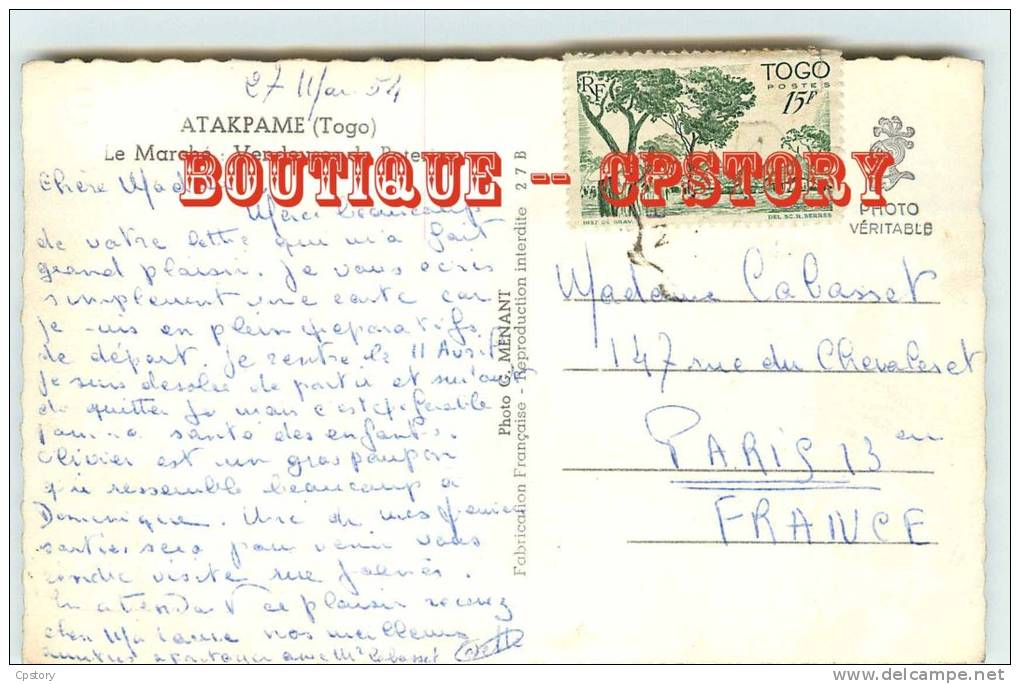 27 Mar 54
ATAKPAME (Togo)
Le Marché - Vendeuses de Poteries
BOUTIQUE -- CPSTORY
Chère Madame
Merci beaucoup
de votre lettre qui m'a fait
grand plaisir. Je vous écris
simplement une carte car
je suis en plein préparatifs
de départ. Je rentre le 11 Avril
Je suis désolée de partir et
de quitter Jo mais c'est préférable
pour la santé des enfants.
Olivier est un gros poupon
qui ressemble beaucoup à
Dominique. Une de mes premières
sorties sera pour venir vous
rendre visite rue
En attendant ce plaisir recevez
chère Madame nos meilleures
amitiés à partager avec Mr Cabasset
Photo G. MENANT
Fabrication Française - Reproduction interdite 27 B
RF
TOGO
POSTES
15F
INST DE GRAV.
DEL. SC. R. SERRES
PHOTO
VÉRITABLE
Madame Cabasset
147 rue du Chevaleret
PARIS 13 em
FRANCE
Cpstory
delcampe.net